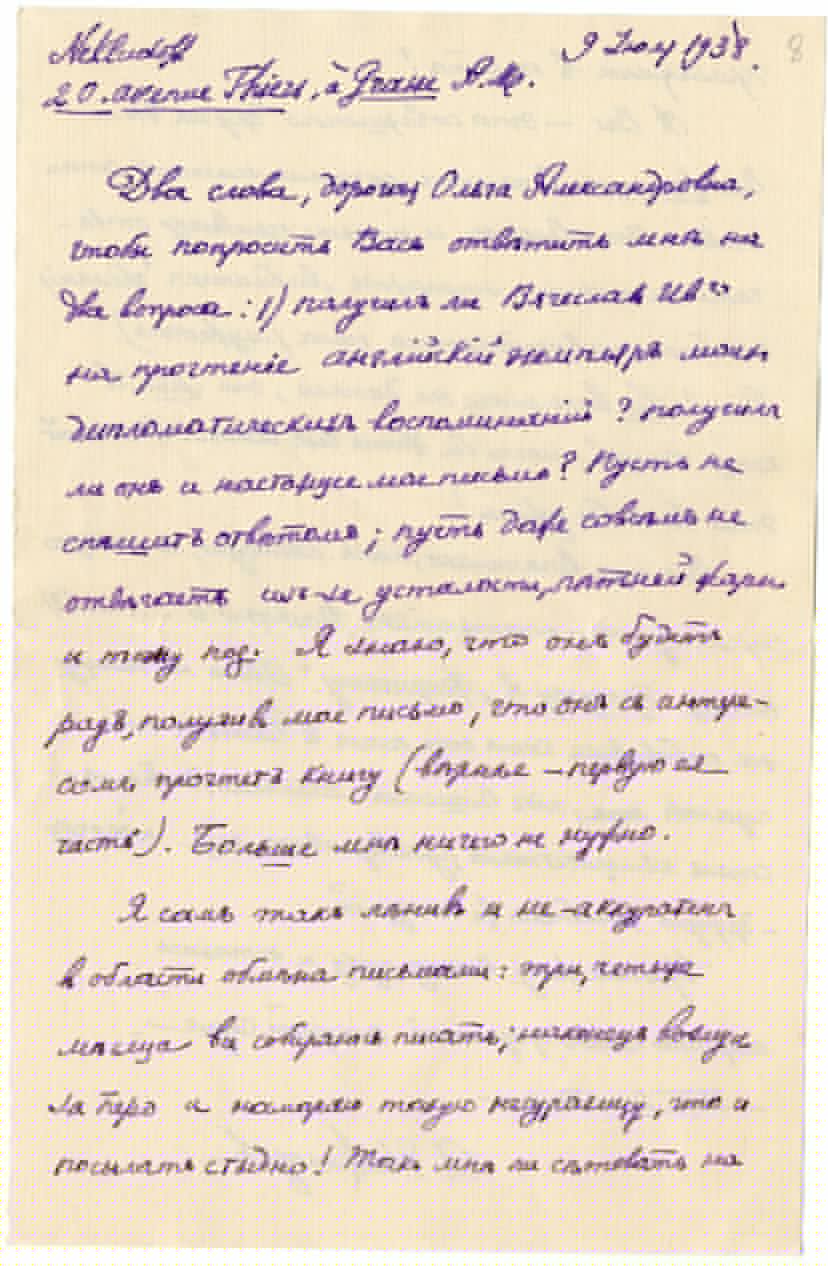 Nekludoff 9 Июля 1938. 8
20. avenue Thiers, à Grasse A.M.
Два слова, дорогая Ольга Александровна,
чтобы попросить Васъ отвѣтить мнѣ на
два вопроса: 1) получилъ ли Вячеслав Ив.
на прочтенiе англiйскiй экземпляръ моихъ
дипломатическихъ воспоминанiй? получилъ
ли онъ и настоящее мое письмо? Пусть не
спѣшитъ отвѣтомъ; пусть даже совсѣмъ не
отвѣчаетъ изъ-за усталости, лѣтней жары
и тому под. Я знаю, что онъ будетъ
радъ, получив мое письмо, что онъ съ интере-
сомъ прочтетъ книгу (вѣрнѣе – первую ея
часть). Больше мнѣ ничего не нужно.
Я самъ такъ лѣнивъ и не-аккуратенъ
в области обмѣна письмами: три, четыре
мѣсяца все собираюсь писать; наконецъ возьмусь
за перо и намараю такую неурядицу, что и
посылать стыдно! Такъ мнѣ ли сѣтовать на